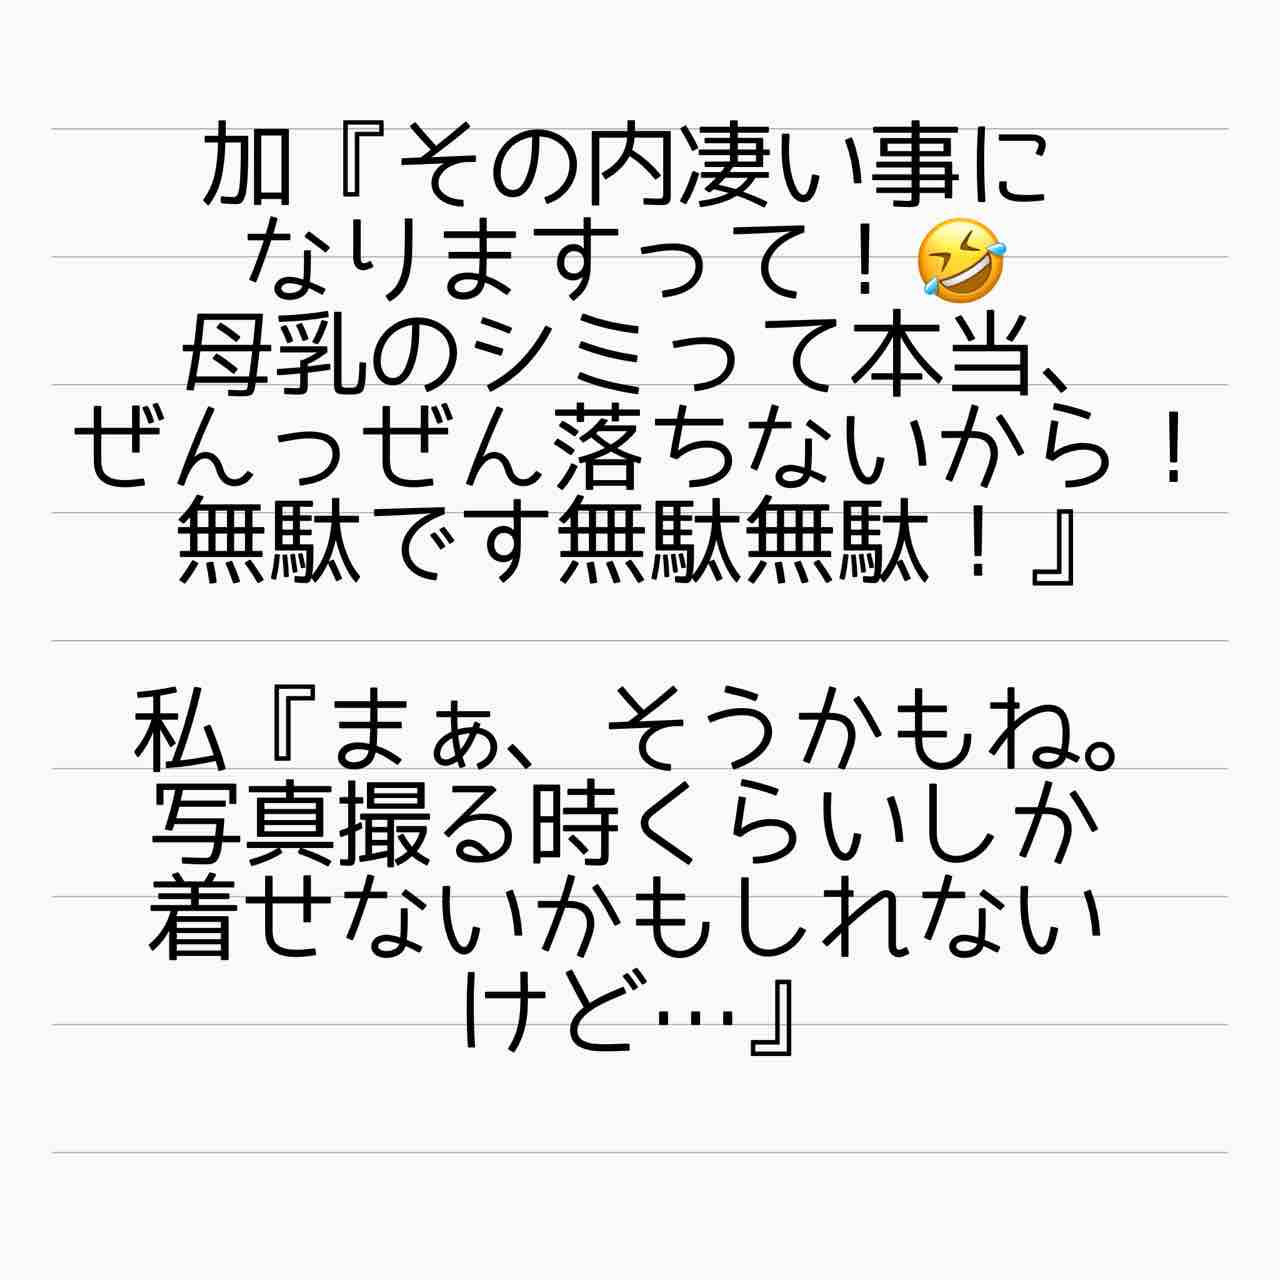 加『その内凄い事に
なりますって！🤣
母乳のシミって本当、
ぜんっぜん落ちないから！
無駄です無駄無駄！』
私『まぁ、そうかもね。
写真撮る時くらいしか
着せないかもしれない
けど…』